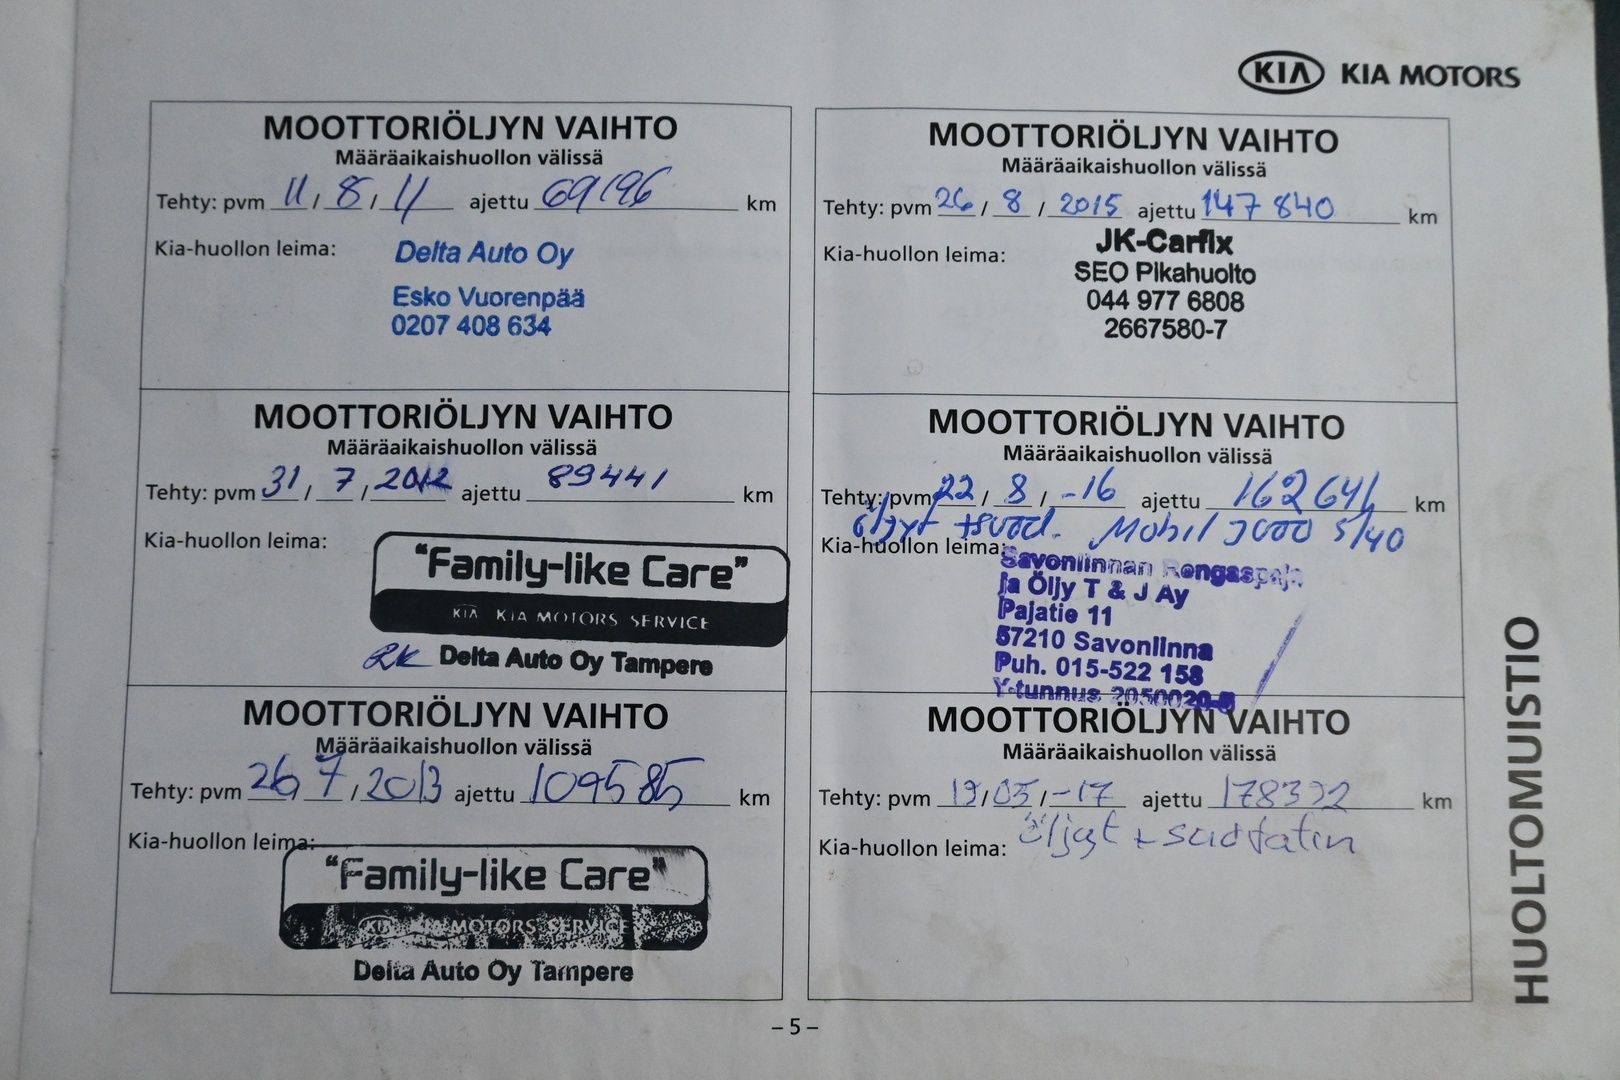 KIA KIA MOTORS
MOOTTORIÖLJYN VAIHTO
Määräaikaishuollon välissä
Tehty: pvm 11 / 8 / 11 ajettu 69196 km
Kia-huollon leima:
Delta Auto Oy
Esko Vuorenpää
0207 408 634
MOOTTORIÖLJYN VAIHTO
Määräaikaishuollon välissä
Tehty: pvm 31 / 7 / 2012 ajettu 89441 km
Kia-huollon leima:
"Family-like Care"
KIA KIA MOTORS SERVICE
Delta Auto Oy Tampere
MOOTTORIÖLJYN VAIHTO
Määräaikaishuollon välissä
Tehty: pvm 26 7 / 2013 ajettu 109585 km
Kia-huollon leima:
"Family-like Care"
KIA KIA MOTORS SERVICE
Delta Auto Oy Tampere
MOOTTORIÖLJYN VAIHTO
Määräaikaishuollon välissä
Tehty: pvm 26 / 8 / 2015 ajettu 147 840 km
Kia-huollon leima:
JK-Carfix
SEO Pikahuolto
044 977 6808
2667580-7
MOOTTORIÖLJYN VAIHTO
Määräaikaishuollon välissä
Tehty: pvm 22 / 8 / -16 ajettu 162641 km
öljyt + suod. Mobil 3000 5/40
Kia-huollon leima:
Savonlinnan Rengaspaja
ja Öljy T & J Ay
Pajatie 11
57210 Savonlinna
Puh. 015-522 158
Y-tunnus 2050020-5
MOOTTORIÖLJYN VAIHTO
Määräaikaishuollon välissä
Tehty: pvm 19/05/-17 ajettu 178392 km
Öljyt + suodatin
Kia-huollon leima:
HUOLTOMUISTIO
– 5 –